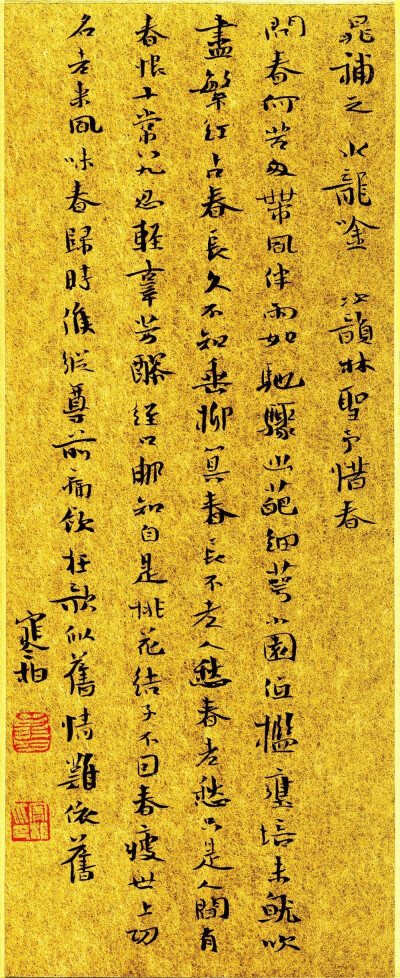 晁補之 水龍唫 次韻林聖予惜春
問春何苦匆帶風伴雨如馳驟幽葩細萼小園低檻壅培未就吹
盡繁紅占春長久不知垂柳算春長不老人愁春老愁只是人間有
春恨十常八九忍輕辜芳醪經口那知自是桃花結子不因春瘦世上功
名老來風味春歸時候縱尊前痛飲狂歌似舊情難依舊
寒柏